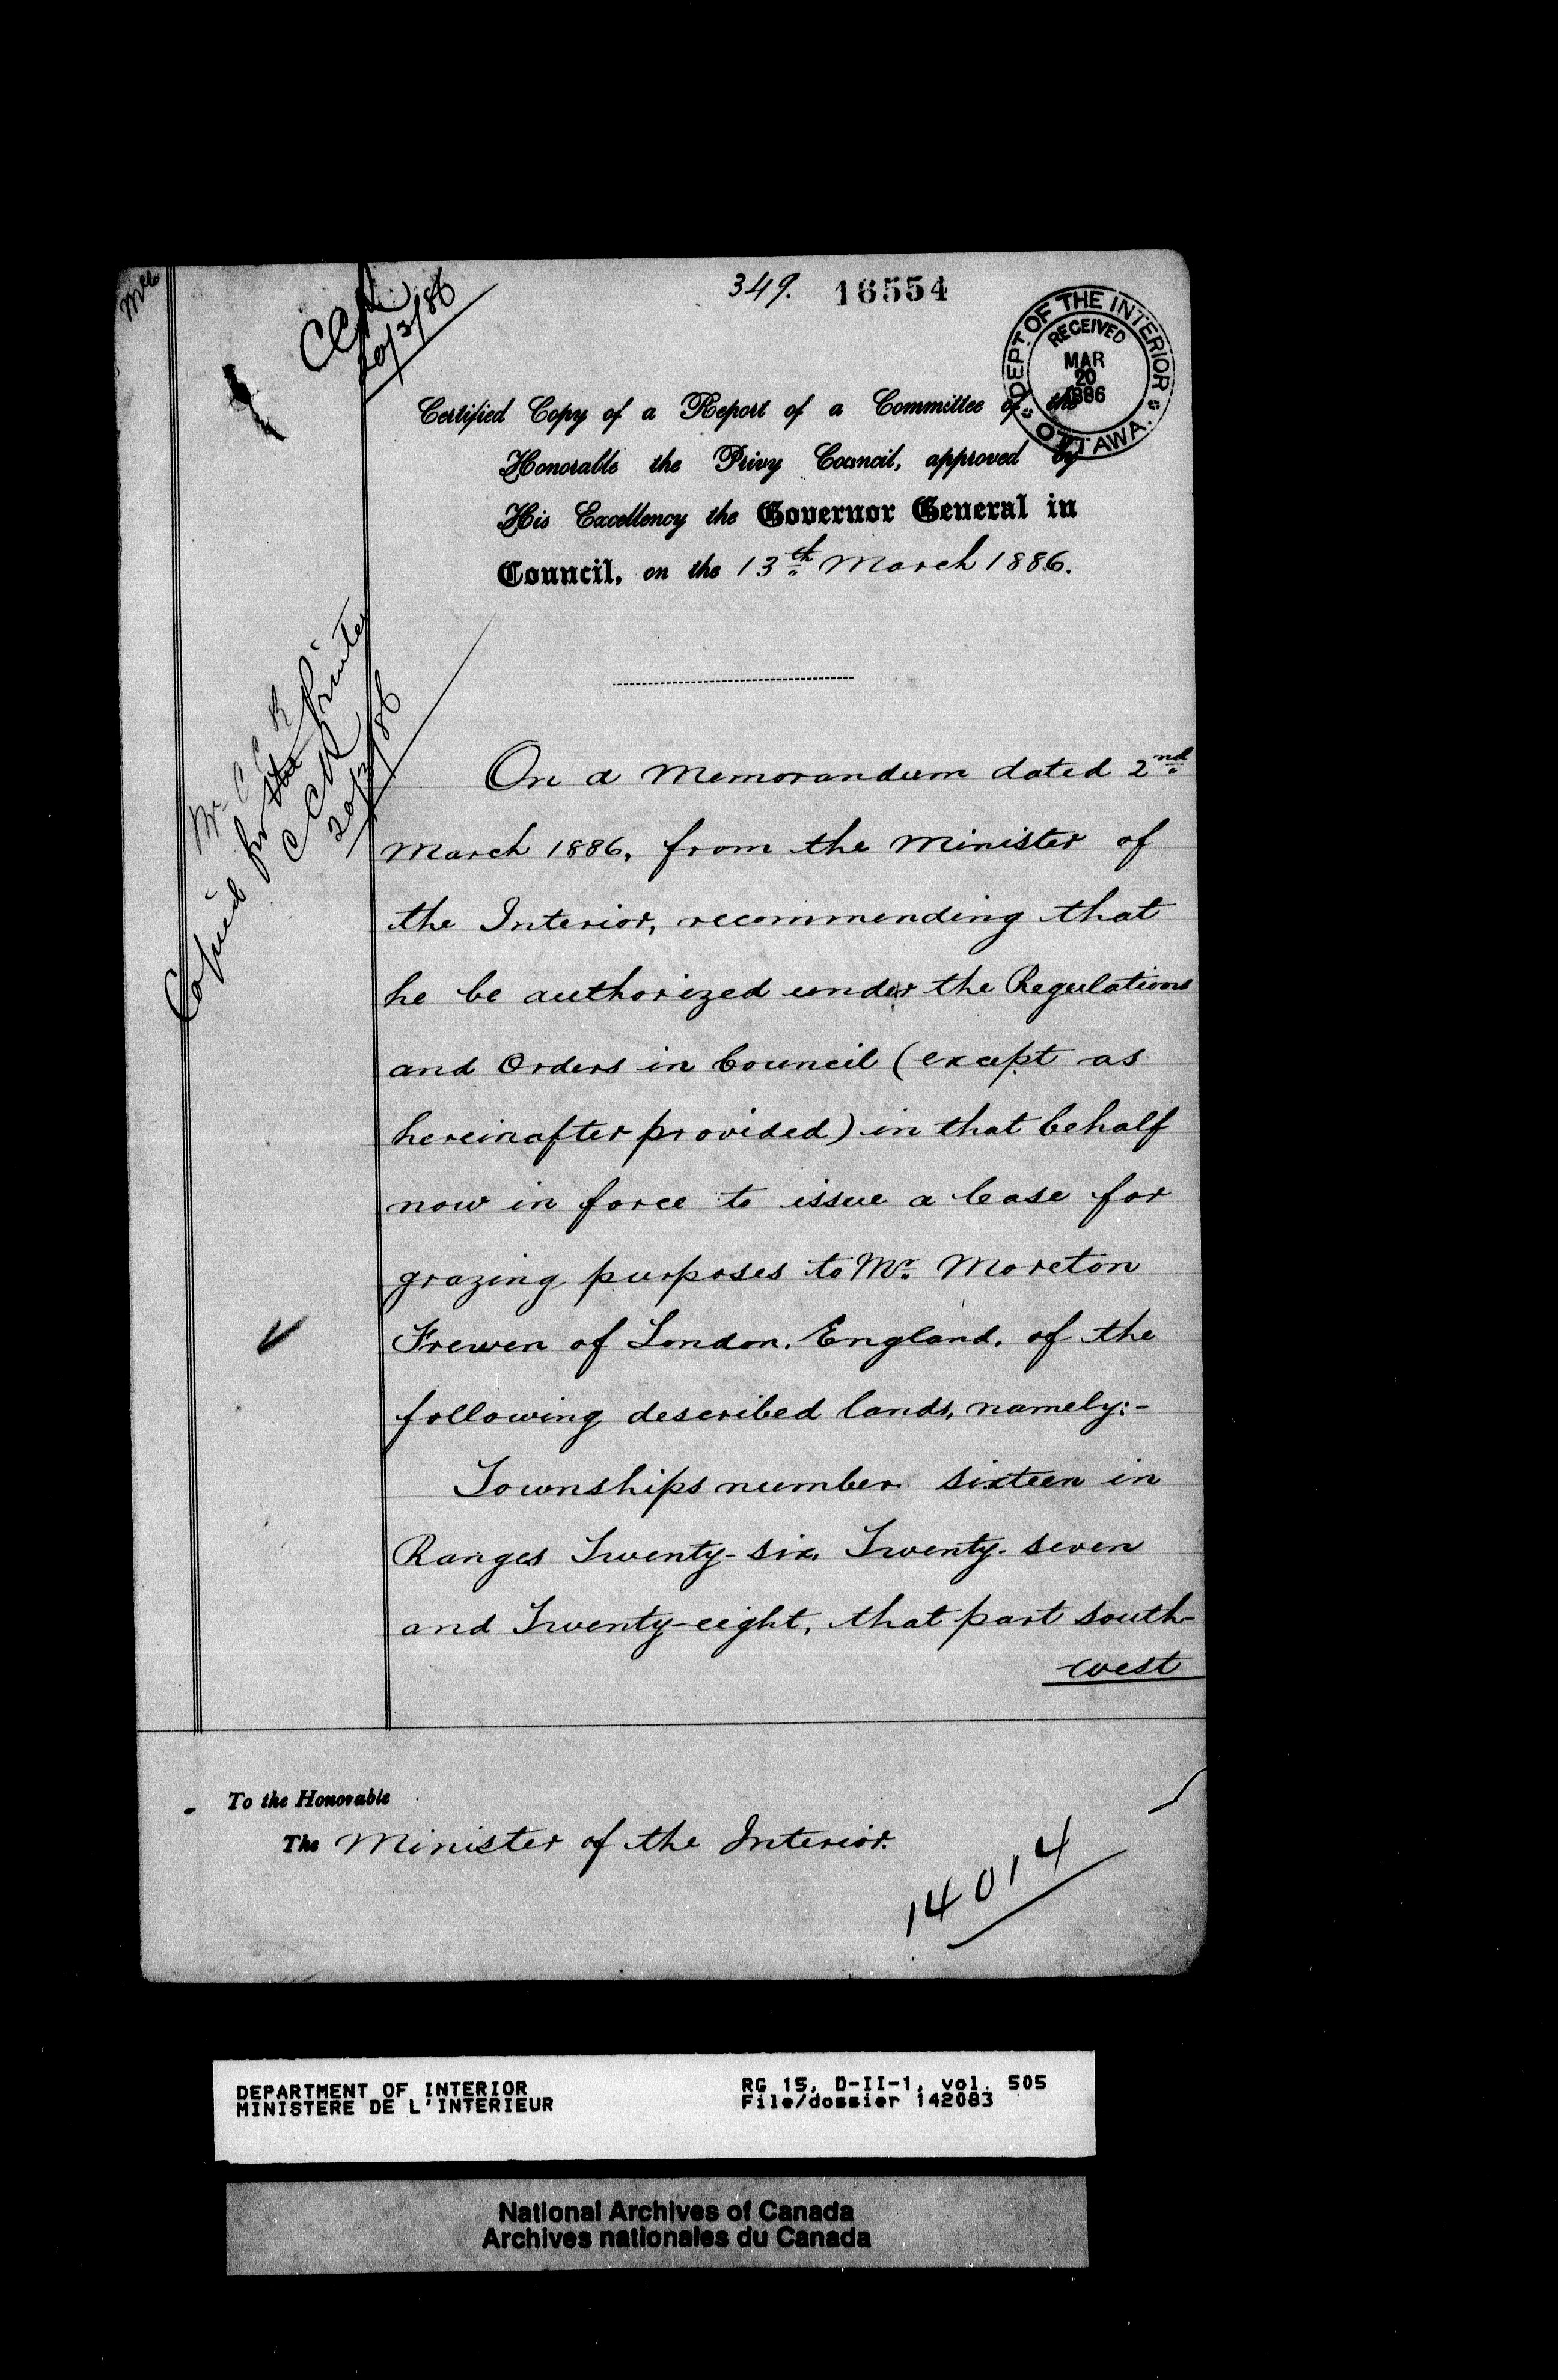 349. 16554
DEPT. OF THE INTERIOR
RECEIVED
MAR
20
1886
OTTAWA.
CCR
20/3/86
Certified Copy of a Report of a Committee of the
Honorable the Privy Council, approved by
His Excellency the Governor General in
Council, on the 13th March 1886.
Mr C C R
Copied for the Printer
CCR
20/3/86
On a Memorandum dated 2nd
March 1886, from the Minister of
the Interior, recommending that
he be authorized under the Regulations
and Orders in Council (except as
hereinafter provided) in that behalf
now in force to issue a lease for
grazing purposes to Mr. Moreton
Frewen of London. England. of the
following described lands, namely:-
Townships number sixteen in
Ranges Twenty-six, Twenty-seven
and Twenty-eight, that part south-
west
To the Honorable
The Minister of the Interior.
14014
DEPARTMENT OF INTERIOR
MINISTERE DE L'INTERIEUR
RG 15, D-II-1, vol. 505
File/dossier 142083
National Archives of Canada
Archives nationales du Canada